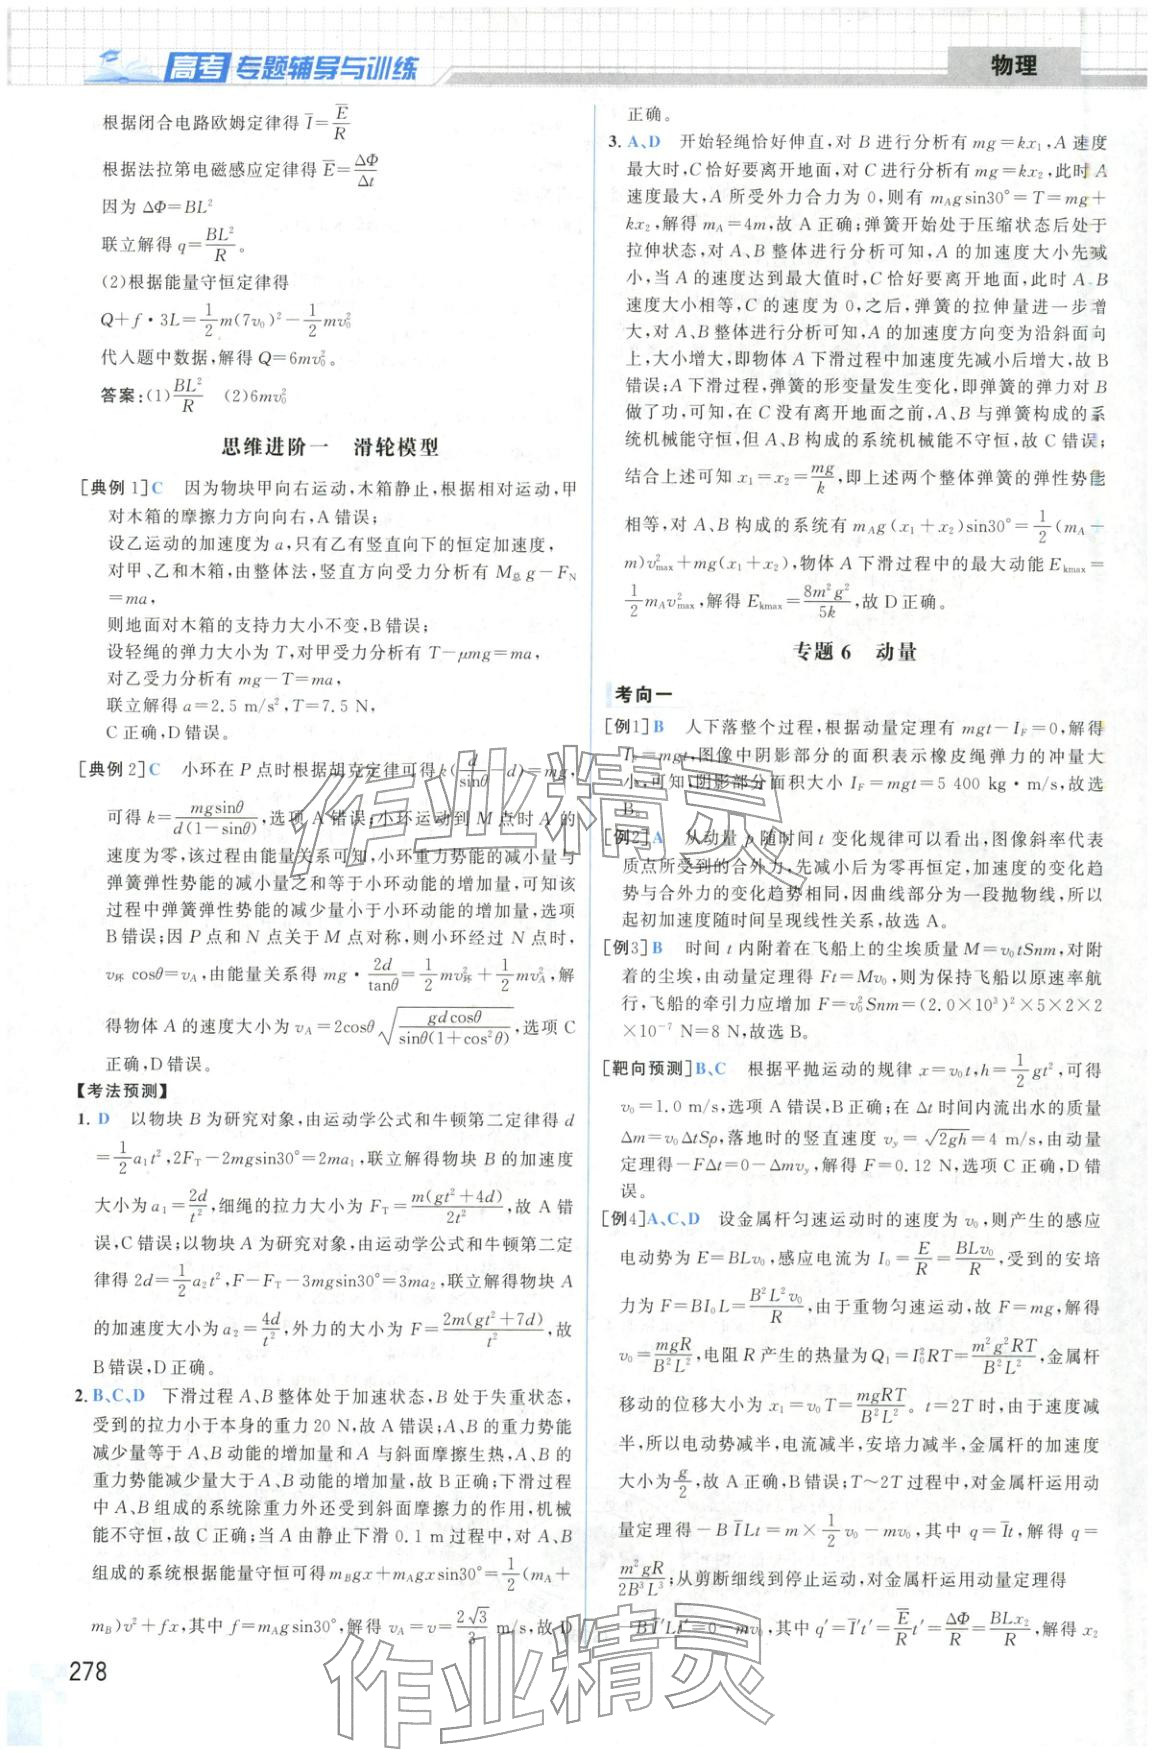 高考 专题辅导与训练
物理
根据闭合电路欧姆定律得 I̅=E̅/R
根据法拉第电磁感应定律得 E̅=ΔΦ/Δt
因为 ΔΦ=BL²
联立解得 q=BL²/R。
(2)根据能量守恒定律得
Q+f·3L=1/2 m(7v₀)²-1/2 mv₀²
代入题中数据,解得 Q=6mv₀²。
答案:(1)BL²/R (2)6mv₀²
思维进阶一 滑轮模型
[典例1]C 因为物块甲向右运动,木箱静止,根据相对运动,甲
对木箱的摩擦力方向向右,A错误;
设乙运动的加速度为 a,只有乙有竖直向下的恒定加速度,
对甲、乙和木箱,由整体法,竖直方向受力分析有 M总 g-F_N
=ma,
则地面对木箱的支持力大小不变,B错误;
设轻绳的弹力大小为 T,对甲受力分析有 T-μmg=ma,
对乙受力分析有 mg-T=ma,
联立解得 a=2.5 m/s²,T=7.5 N,
C正确,D错误。
[典例2]C 小环在 P 点时根据胡克定律可得 k(d/sinθ-d)=mg,
可得 k=mgsinθ/d(1-sinθ),选项 A 错误;小环运动到 M 点时 A 的
速度为零,该过程由能量关系可知,小环重力势能的减小量与
弹簧弹性势能的减小量之和等于小环动能的增加量,可知该
过程中弹簧弹性势能的减少量小于小环动能的增加量,选项
B错误;因 P 点和 N 点关于 M 点对称,则小环经过 N 点时,
v环 cosθ=v_A,由能量关系得 mg·2d/tanθ=1/2 mv环²+1/2 mv_A²,解
得物体 A 的速度大小为 v_A=2cosθ√(gdcosθ/sinθ(1+cos²θ)),选项 C
正确,D错误。
【考法预测】
1. D 以物块 B 为研究对象,由运动学公式和牛顿第二定律得 d
=1/2 a₁t²,2F_T-2mgsin30°=2ma₁,联立解得物块 B 的加速度
大小为 a₁=2d/t²,细绳的拉力大小为 F_T=m(gt²+4d)/2t²,故 A 错
误,C错误;以物块 A 为研究对象,由运动学公式和牛顿第二定
律得 2d=1/2 a₂t²,F-F_T-3mgsin30°=3ma₂,联立解得物块 A
的加速度大小为 a₂=4d/t²,外力的大小为 F=2m(gt²+7d)/t²,故
B错误,D正确。
2. B、C、D 下滑过程 A、B 整体处于加速状态,B 处于失重状态,
受到的拉力小于本身的重力 20 N,故 A 错误;A、B 的重力势能
减少量等于 A、B 动能的增加量和 A 与斜面摩擦生热,A、B 的
重力势能减少量大于 A、B 动能的增加量,故 B 正确;下滑过程
中 A、B 组成的系统除重力外还受到斜面摩擦力的作用,机械
能不守恒,故 C 正确;当 A 由静止下滑 0.1 m 过程中,对 A、B
组成的系统根据能量守恒可得 m_Bgx+m_Agxsin30°=1/2(m_A+
m_B)v²+fx,其中 f=m_Agsin30°,解得 v_A=v=2√3/3 m/s,故 D
278
正确。
3. A、D 开始轻绳恰好伸直,对 B 进行分析有 mg=kx₁,A 速度
最大时,C 恰好要离开地面,对 C 进行分析有 mg=kx₂,此时 A
速度最大,A 所受外力合力为 0,则有 m_Agsin30°=T=mg+
kx₂,解得 m_A=4m,故 A 正确;弹簧开始处于压缩状态后处于
拉伸状态,对 A、B 整体进行分析可知,A 的加速度大小先减
小,当 A 的速度达到最大值时,C 恰好要离开地面,此时 A、B
速度大小相等,C 的速度为 0,之后,弹簧的拉伸量进一步增
大,对 A、B 整体进行分析可知,A 的加速度方向变为沿斜面向
上,大小增大,即物体 A 下滑过程中加速度先减小后增大,故 B
错误;A 下滑过程,弹簧的形变量发生变化,即弹簧的弹力对 B
做了功,可知,在 C 没有离开地面之前,A、B 与弹簧构成的系
统机械能守恒,但 A、B 构成的系统机械能不守恒,故 C 错误;
结合上述可知 x₁=x₂=mg/k,即上述两个整体弹簧的弹性势能
相等,对 A、B 构成的系统有 m_Ag(x₁+x₂)sin30°=1/2(m_A+
m)v²max+mg(x₁+x₂),物体 A 下滑过程中的最大动能 E_kmax=
1/2 m_Av²max,解得 E_kmax=8m²g²/5k,故 D 正确。
专题6 动量
考向一
[例1]B 人下落整个过程,根据动量定理有 mgt-I_F=0,解得
I_F=mgt,图像中阴影部分的面积表示橡皮绳弹力的冲量大
小,可知,阴影部分面积大小 I_F=mgt=5 400 kg·m/s,故选
B。
[例2]A 从动量 p 随时间 t 变化规律可以看出,图像斜率代表
质点所受到的合外力,先减小后为零再恒定,加速度的变化趋
势与合外力的变化趋势相同,因曲线部分为一段抛物线,所以
起初加速度随时间呈现线性关系,故选 A。
[例3]B 时间 t 内附着在飞船上的尘埃质量 M=v₀tSnm,对附
着的尘埃,由动量定理得 Ft=Mv₀,则为保持飞船以原速率航
行,飞船的牵引力应增加 F=v₀²Snm=(2.0×10³)²×5×2×2
×10⁻⁷ N=8 N,故选 B。
[靶向预测]B、C 根据平抛运动的规律 x=v₀t,h=1/2 gt²,可得
v₀=1.0 m/s,选项 A 错误,B 正确;在 Δt 时间内流出水的质量
Δm=v₀ΔtSρ,落地时的竖直速度 v_y=√2gh=4 m/s,由动量
定理得-FΔt=0-Δmv_y,解得 F=0.12 N,选项 C 正确,D 错
误。
[例4]A、C、D 设金属杆匀速运动时的速度为 v₀,则产生的感应
电动势为 E=BLv₀,感应电流为 I₀=E/R=BLv₀/R,受到的安培
力为 F=BI₀L=B²L²v₀/R,由于重物匀速运动,故 F=mg,解得
v₀=mgR/B²L²,电阻 R 产生的热量为 Q₁=I₀²RT=m²g²RT/B²L²,金属杆
移动的位移大小为 x₁=v₀T=mgRT/B²L²。t=2T 时,由于速度减
半,所以电动势减半,电流减半,安培力减半,金属杆的加速度
大小为g/2,故 A 正确,B 错误;T~2T 过程中,对金属杆运用动
量定理得-BI̅Lt=m×1/2 v₀-mv₀,其中 q=I̅t,解得 q=
m²gR/2B³L³;从剪断细线到停止运动,对金属杆运用动量定理得
-BI̅′Lt′=0-mv₀,其中 q′=I̅′t′=E̅/R t′=ΔΦ/R=BLx₂/R,解得 x₂
作业精灵
作业精灵